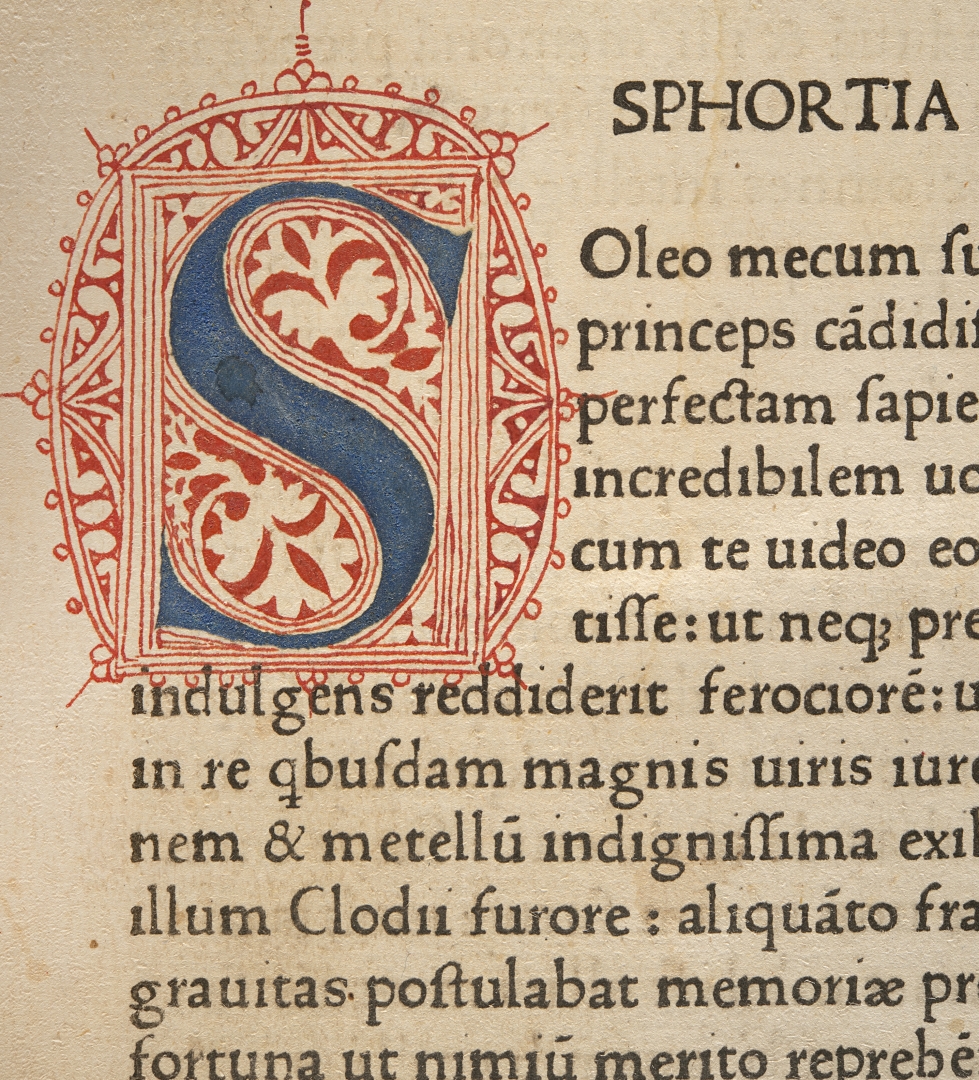 SPHORTIA
S
Oleo mecum ſu
princeps cãdidiſ
perfectam ſapie
incredıbılem uo
cum te uıdeo eo
tiſſe: ut neqꝫ pre
indulgens reddiderıt ferocıorẽ: u
ın re qbuſdam magnıs uırıs ıure
nem & metellũ ındıgnıſſıma exıl
ıllum Clodıı furore : alıquãto fra
grauıtas poſtulabat memorıæ pro
fortuna ut nımıũ merıto reprehẽ